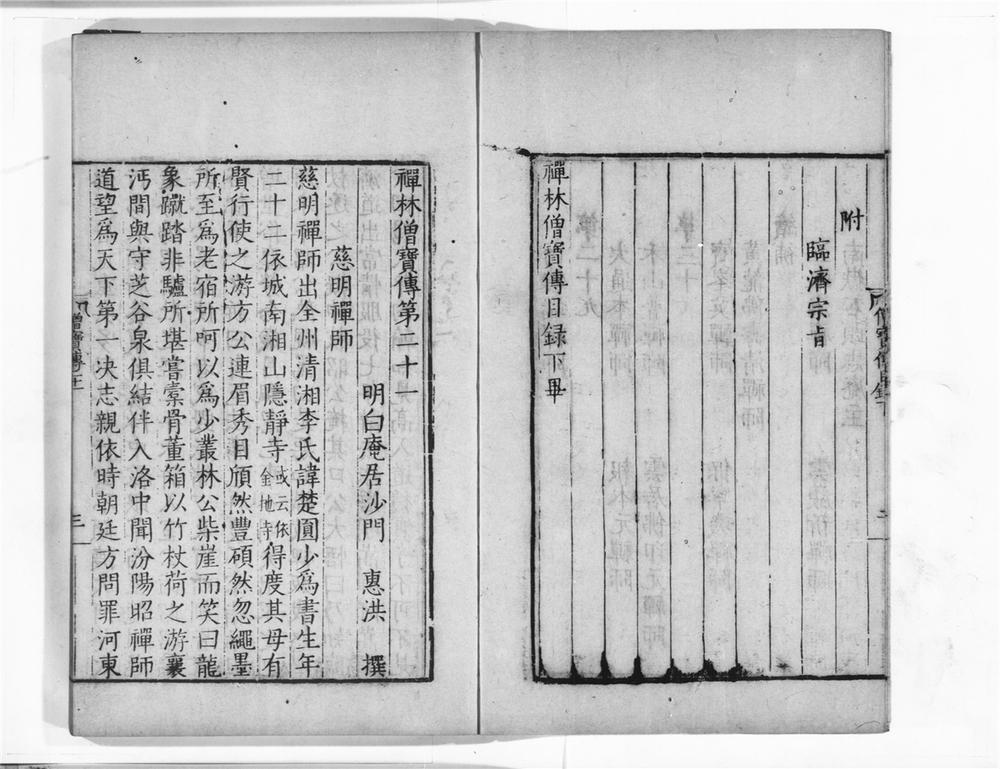 附
臨濟宗旨
禪林僧寶傳目録下畢
禪林僧寶傳第二十一
明白庵居沙門 惠洪 撰
慈明禪師
慈明禪師出全州清湘李氏諱楚圓少爲書生年
二十二依城南湘山隱靜寺或云依金地寺得度其母有
賢行使之游方公連眉秀目頎然豐碩然忽繩墨
所至爲老宿所呵以爲少叢林公柴崖而笑曰龍
象蹴踏非驢所堪嘗橐骨董箱以竹杖荷之游襄
沔間與守芝谷泉俱結伴入洛中聞汾陽昭禪師
道望爲天下第一决志親依時朝廷方問罪河東